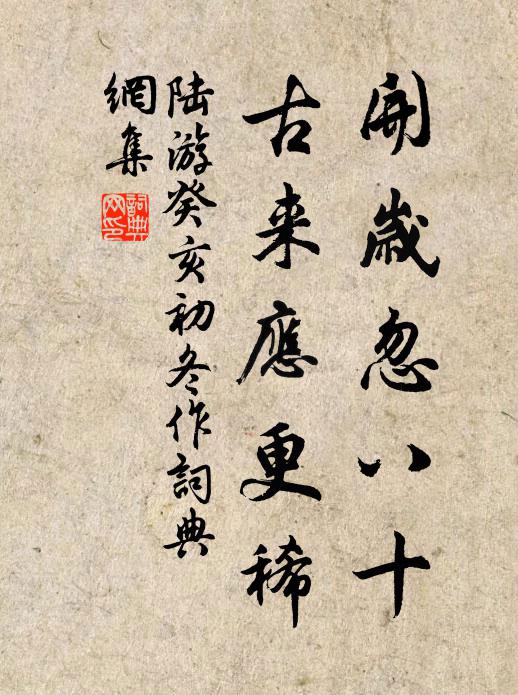 開歲忽八十
古来應更稀
陸游癸亥初冬作詞典
網集
詞典網印